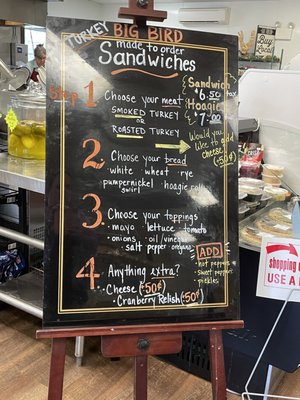 TURKEY
BIG BIRD
made to order
Sandwiches
Step 1
Choose your meat
SMOKED TURKEY
OR
ROASTED TURKEY
Sandwich
$6.50 + tax
Hoagie
$7.00
Would you
like to add
cheese?
(50¢)
2
Choose your bread
· white · wheat · rye
pumpernickel · hoagie roll
swirl
3
Choose your toppings
· mayo · lettuce · tomato
· onions · oil/vinegar
· salt pepper oregano
ADD
· hot peppers
· sweet peppers
· pickles
4
Anything extra?
· Cheese (+50¢)
· Cranberry Relish (+50¢)
shopping
USE A